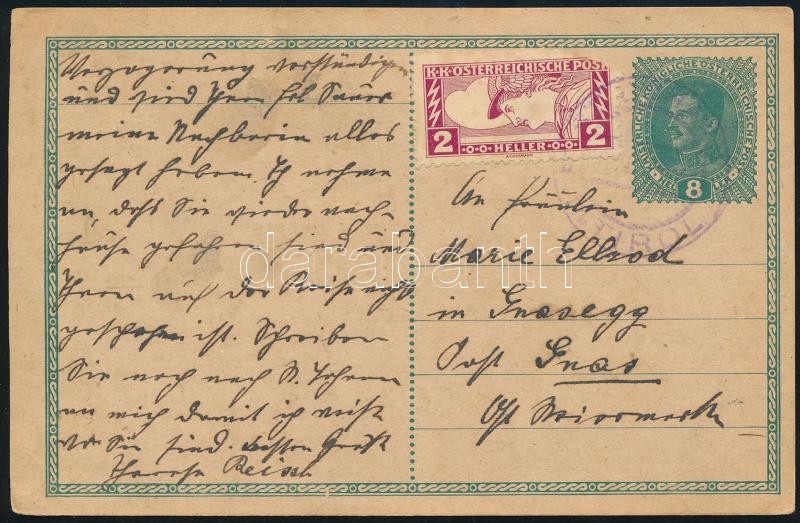 Verzögerung verständigen
und sind Ihnen
meine Nachbarin alles
gesagt haben. Ich nehme
an, daß Sie wieder nach
Hause gefahren sind und
Ihnen auf der Reise nicht
geschehen ist. Schreiben
Sie noch nach St. Johann
an mich damit ich weiß
wo Sie sind. Besten Gruß
Therese Reisch
K.K. ÖSTERREICHISCHE POST
2 HELLER 2
KAISERLICHE KÖNIGLICHE ÖSTERREICHISCHE POST
8
HELLER
TIROL
An Fräulein
Marie Ellrod
in Gnasegg
Post Gnas
Ost Steiermark
darabanth